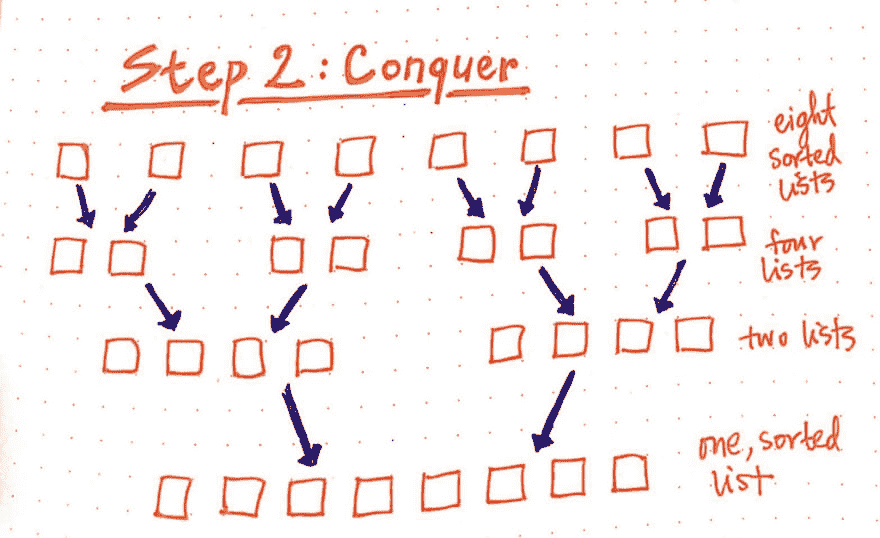 Step 2: Conquer
eight
sorted
lists
four
lists
two lists
one, sorted
list